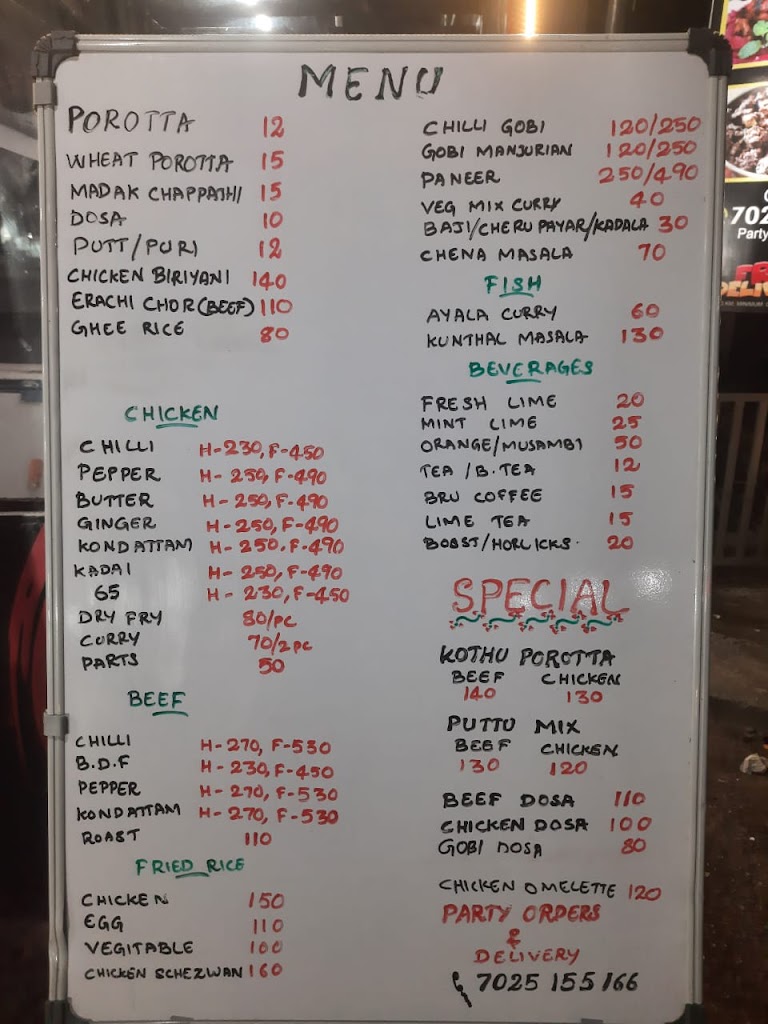 MENU
POROTTA 12
WHEAT POROTTA 15
MADAK CHAPPATHI 15
DOSA 10
PUTT/PURI 12
CHICKEN BIRIYANI 140
ERACHI CHOR(BEEF) 110
GHEE RICE 80
CHICKEN
CHILLI H-230, F-450
PEPPER H-250, F-490
BUTTER H-250, F-490
GINGER H-250, F-490
KONDATTAM H-250, F-490
KADAI H-250, F-490
65 H-230, F-450
DRY FRY 80/PC
CURRY 70/2PC
PARTS 50
BEEF
CHILLI H-270, F-530
B.D.F H-230, F-450
PEPPER H-270, F-530
KONDATTAM H-270, F-530
ROAST 110
FRIED RICE
CHICKEN 150
EGG 110
VEGITABLE 100
CHICKEN SCHEZWAN 160
CHILLI GOBI 120/250
GOBI MANJURIAN 120/250
PANEER 250/490
VEG MIX CURRY 40
BAJI/CHERU PAYAR/KADALA 30
CHENA MASALA 70
FISH
AYALA CURRY 60
KUNTHAL MASALA 130
BEVERAGES
FRESH LIME 20
MINT LIME 25
ORANGE/MUSAMBI 50
TEA/B.TEA 12
BRU COFFEE 15
LIME TEA 15
BOBST/HORLICKS. 20
SPECIAL
KOTHU POROTTA
BEEF CHICKEN
140 130
PUTTU MIX
BEEF CHICKEN
130 120
BEEF DOSA 110
CHICKEN DOSA 100
GOBI DOSA 80
CHICKEN OMELETTE 120
PARTY ORDERS
&
DELIVERY
7025 155 166
702
Party